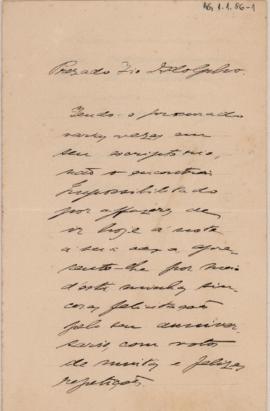 AG 1.1.86-1
Prezado Tio Adolpho.
Tendo-o procurado
varias vezes em
seu escriptorio,
não o encontrei
Impossibilitado
por affazeres de
ir hoje á noite
á sua casa, apre-
sento-lhe por meio
d'esta minhas sin-
ceras felicitações
pelo seu anniver-
sario, com votos
de muitas e felizes
repetições.